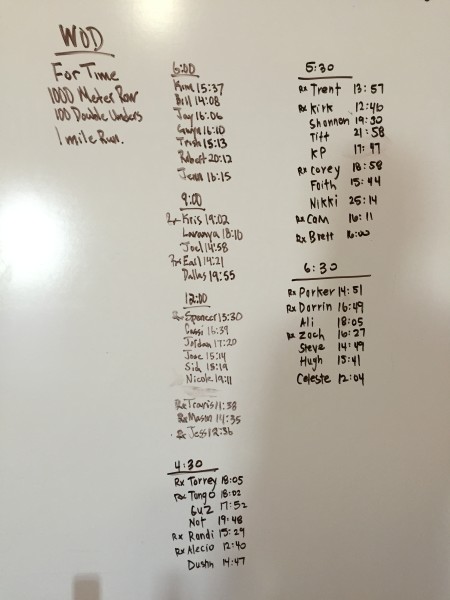 WOD
For Time
1000 Meter Row
100 Double Unders
1 mile Run.
6:00
Kim 15:37
Brill 14:08
Jay 16:06
16:10
Trish 15:13
Robert 20:12
Jenn 16:15
9:00
Rx Kris 19:02
18:10
Joel 14:58
Rx Earl 14:21
Dallas 19:55
12:00
Rx Spencer 15:30
Cassi 16:39
Jordan 17:20
Jose 15:14
Sid 15:19
Nicole 19:11
Rx Travis 11:38
Rx Mason 14:35
Rx Jess 12:36
4:30
Rx Torrey 18:05
Rx Tungo 18:02
Guz 17:52
Nat 19:48
Rx Randi 15:29
Rx Alecio 12:40
Dustin 14:47
5:30
Rx Trent 13:57
Rx Kirk 12:46
Shannon 19:30
Tiff 21:58
KP 17:47
Rx Corey 18:58
Faith 15:44
Nikki 25:14
Rx Cam 16:11
Rx Brett 16:00
6:30
Rx Parker 14:51
Rx Darrin 16:49
Ali 18:05
Rx Zach 16:27
Steve 14:49
Hugh 15:41
Celeste 12:04